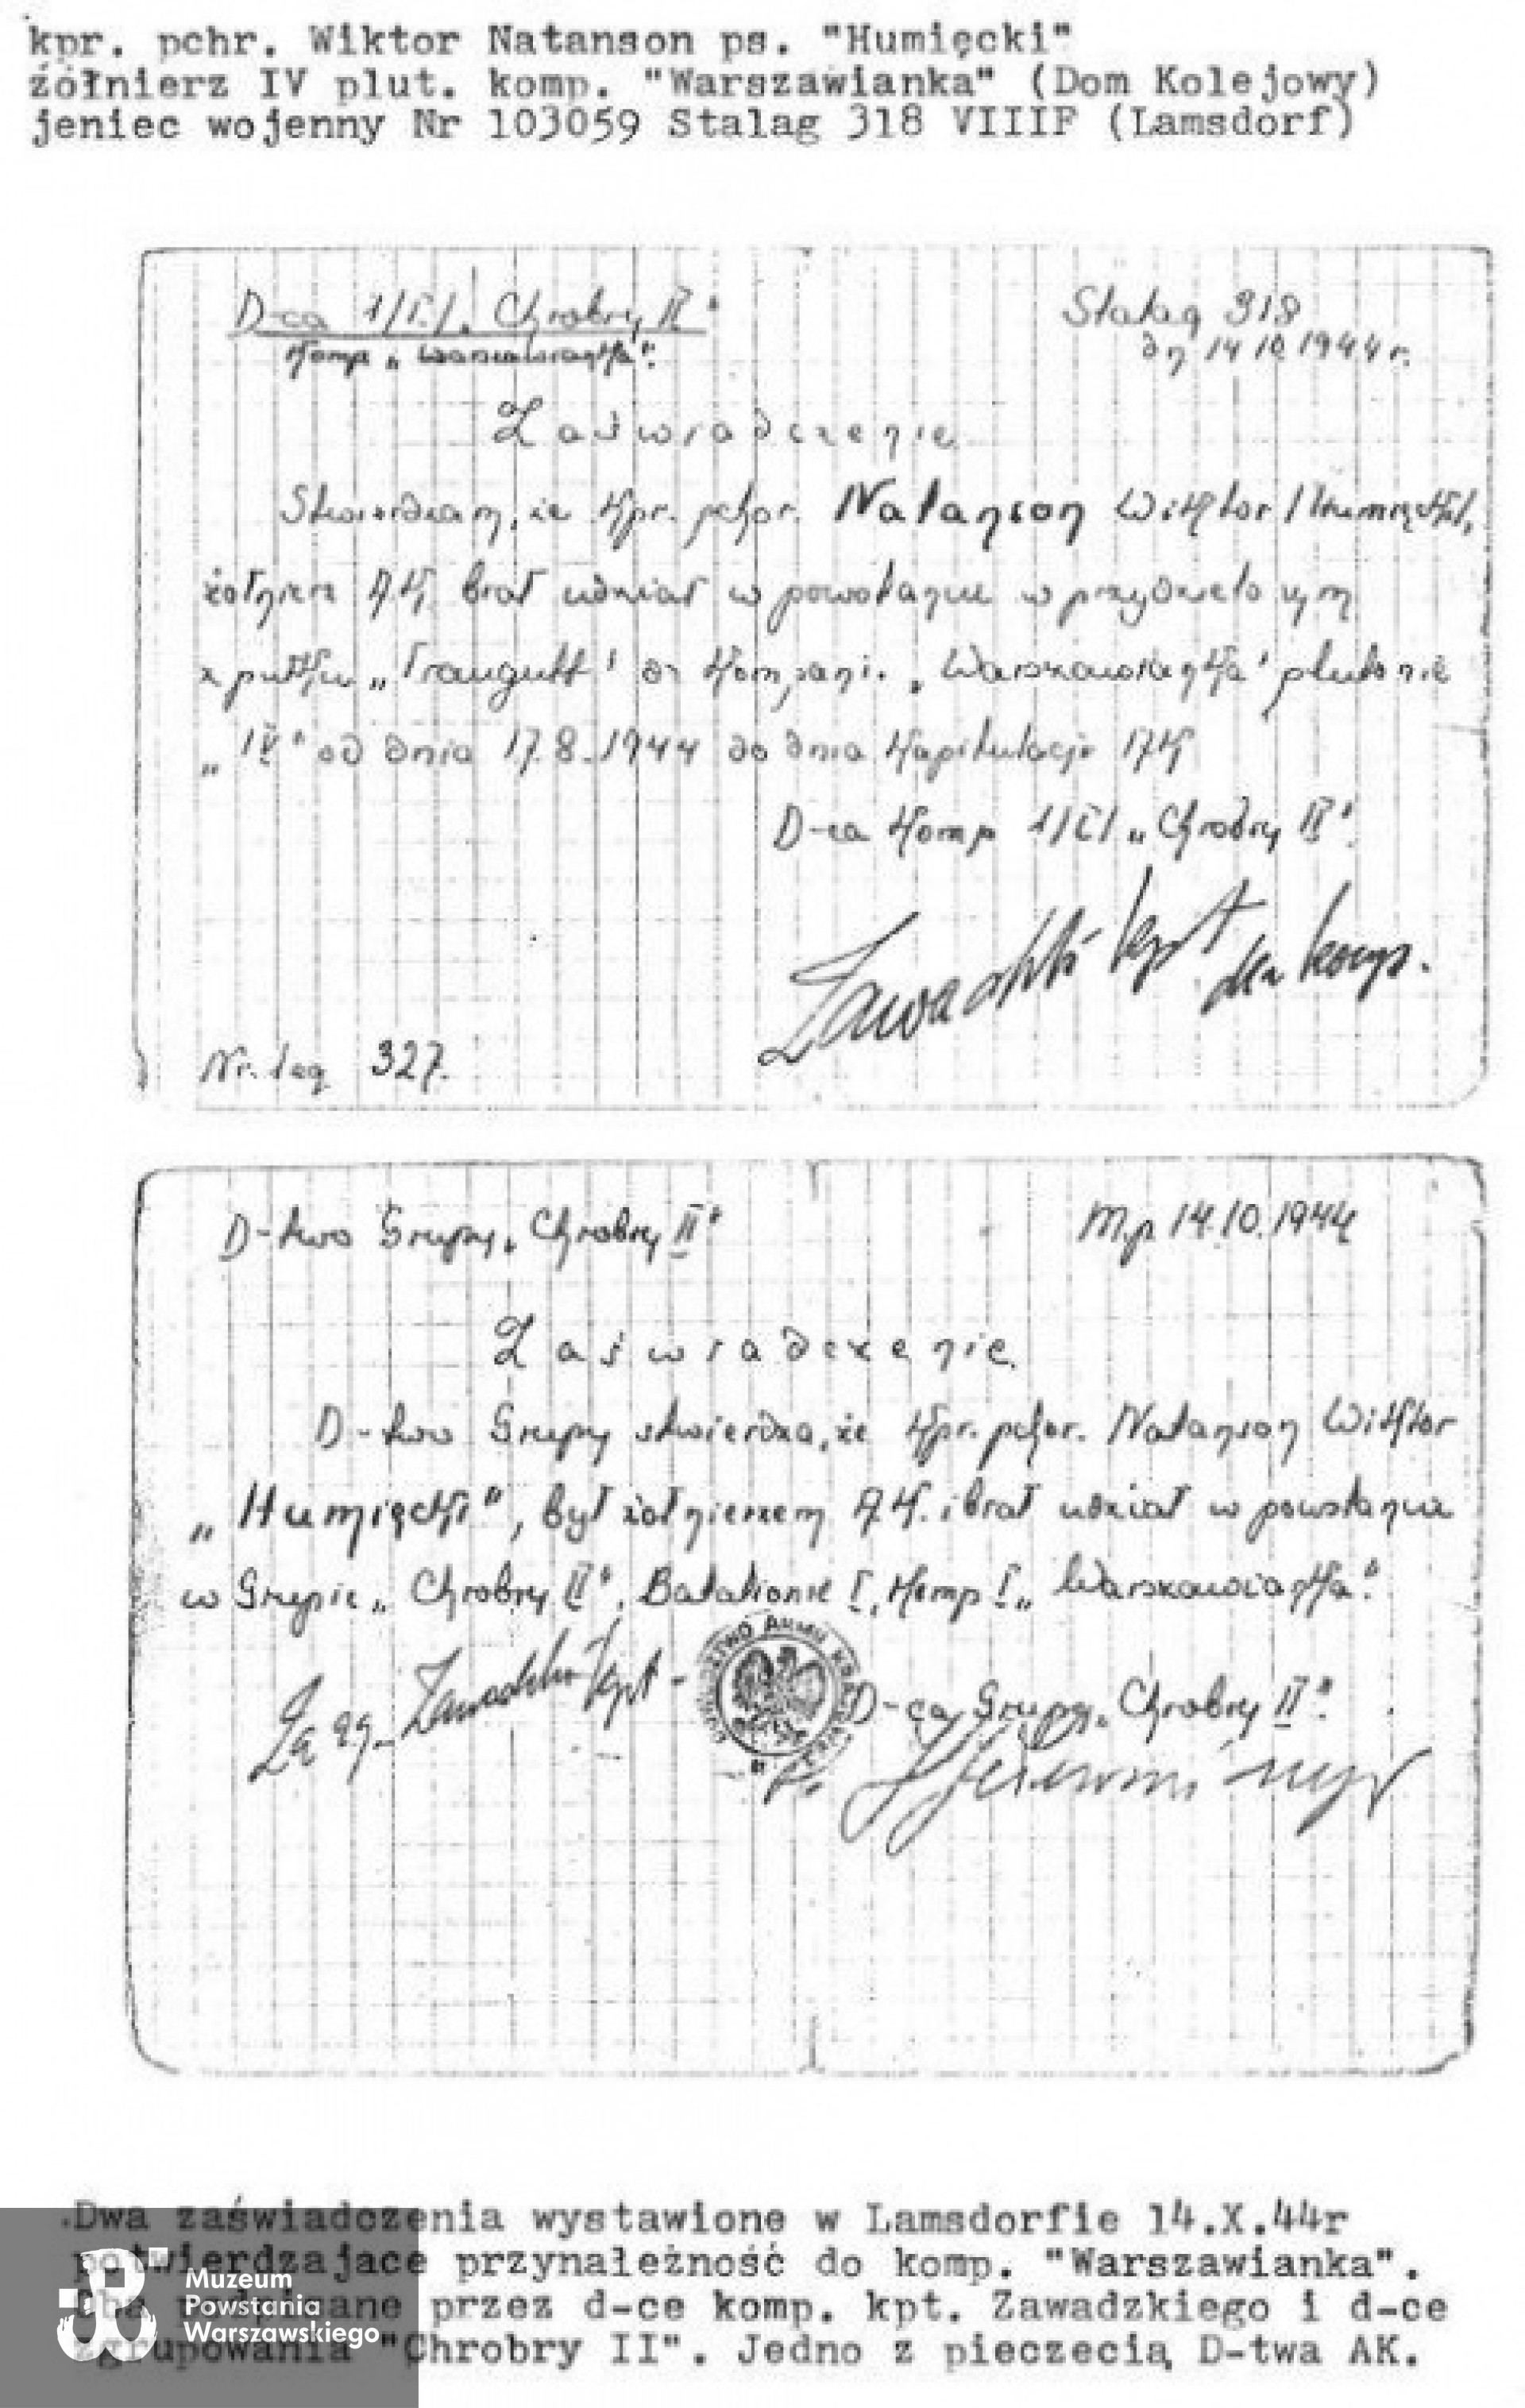 kpr. pchr. Wiktor Natanson ps. "Humięcki"
żołnierz IV plut. komp. "Warszawianka" (Dom Kolejowy)
jeniec wojenny Nr 103059 Stalag 318 VIIIF (Lamsdorf)
D-ca 1/I/„Chrobry II"
Komp „Warszawianka".
Stalag 318
dn 14 10 1944 r.
Zaświadczenie
Stwierdzam, że kpr. pchor. Natanson Wiktor /Humięcki/,
żołnierz A.K. brał udział w powstaniu w przydzielonym
z pułku „Traugutt" do kompani „Warszawianka" plutonie
„IV" od dnia 17.8.1944 do dnia kapitulacji
D-ca Komp 1/I/ „Chrobry II".
Zawadzki kpt
d-ca komp.
Nr. leg 327.
D-two Grupy „Chrobry II"
M.p. 14.10.1944
Zaświadczenie
D-two Grupy stwierdza, że kpr. pchor. Natanson Wiktor
„Humięcki", był żołnierzem A.K. i brał udział w powstaniu
w Grupie „Chrobry II", Batalionie I, Komp I „Warszawianka".
Za zg. Zawadzki kpt
D-ca Grupy „Chrobry II".
Dwa zaświadczenia wystawione w Lamsdorfie 14.X.44r
potwierdzające przynależność do komp. "Warszawianka".
Oba podpisane przez d-ce komp. kpt. Zawadzkiego i d-ce
zgrupowania "Chrobry II". Jedno z pieczecią D-twa AK.
Muzeum
Powstania
Warszawskiego